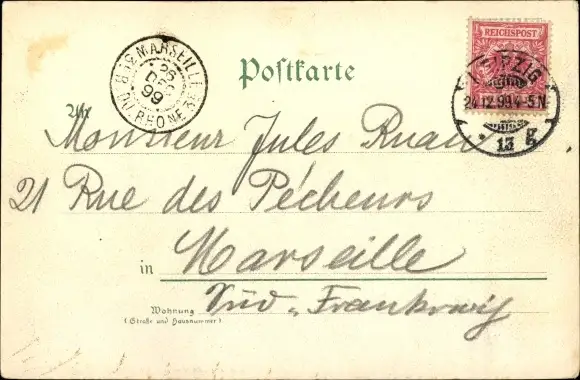 Postkarte
REICHSPOST
LEIPZIG
24.12.99.4-5N
* 13 g
MARSEILLE
26
DEC
99
BCHES DU RHONE
An
Monsieur Jules Ruat
21 Rue des Pêcheurs
in Marseille
Wohnung
(Straße und Hausnummer)
Süd-Frankreich